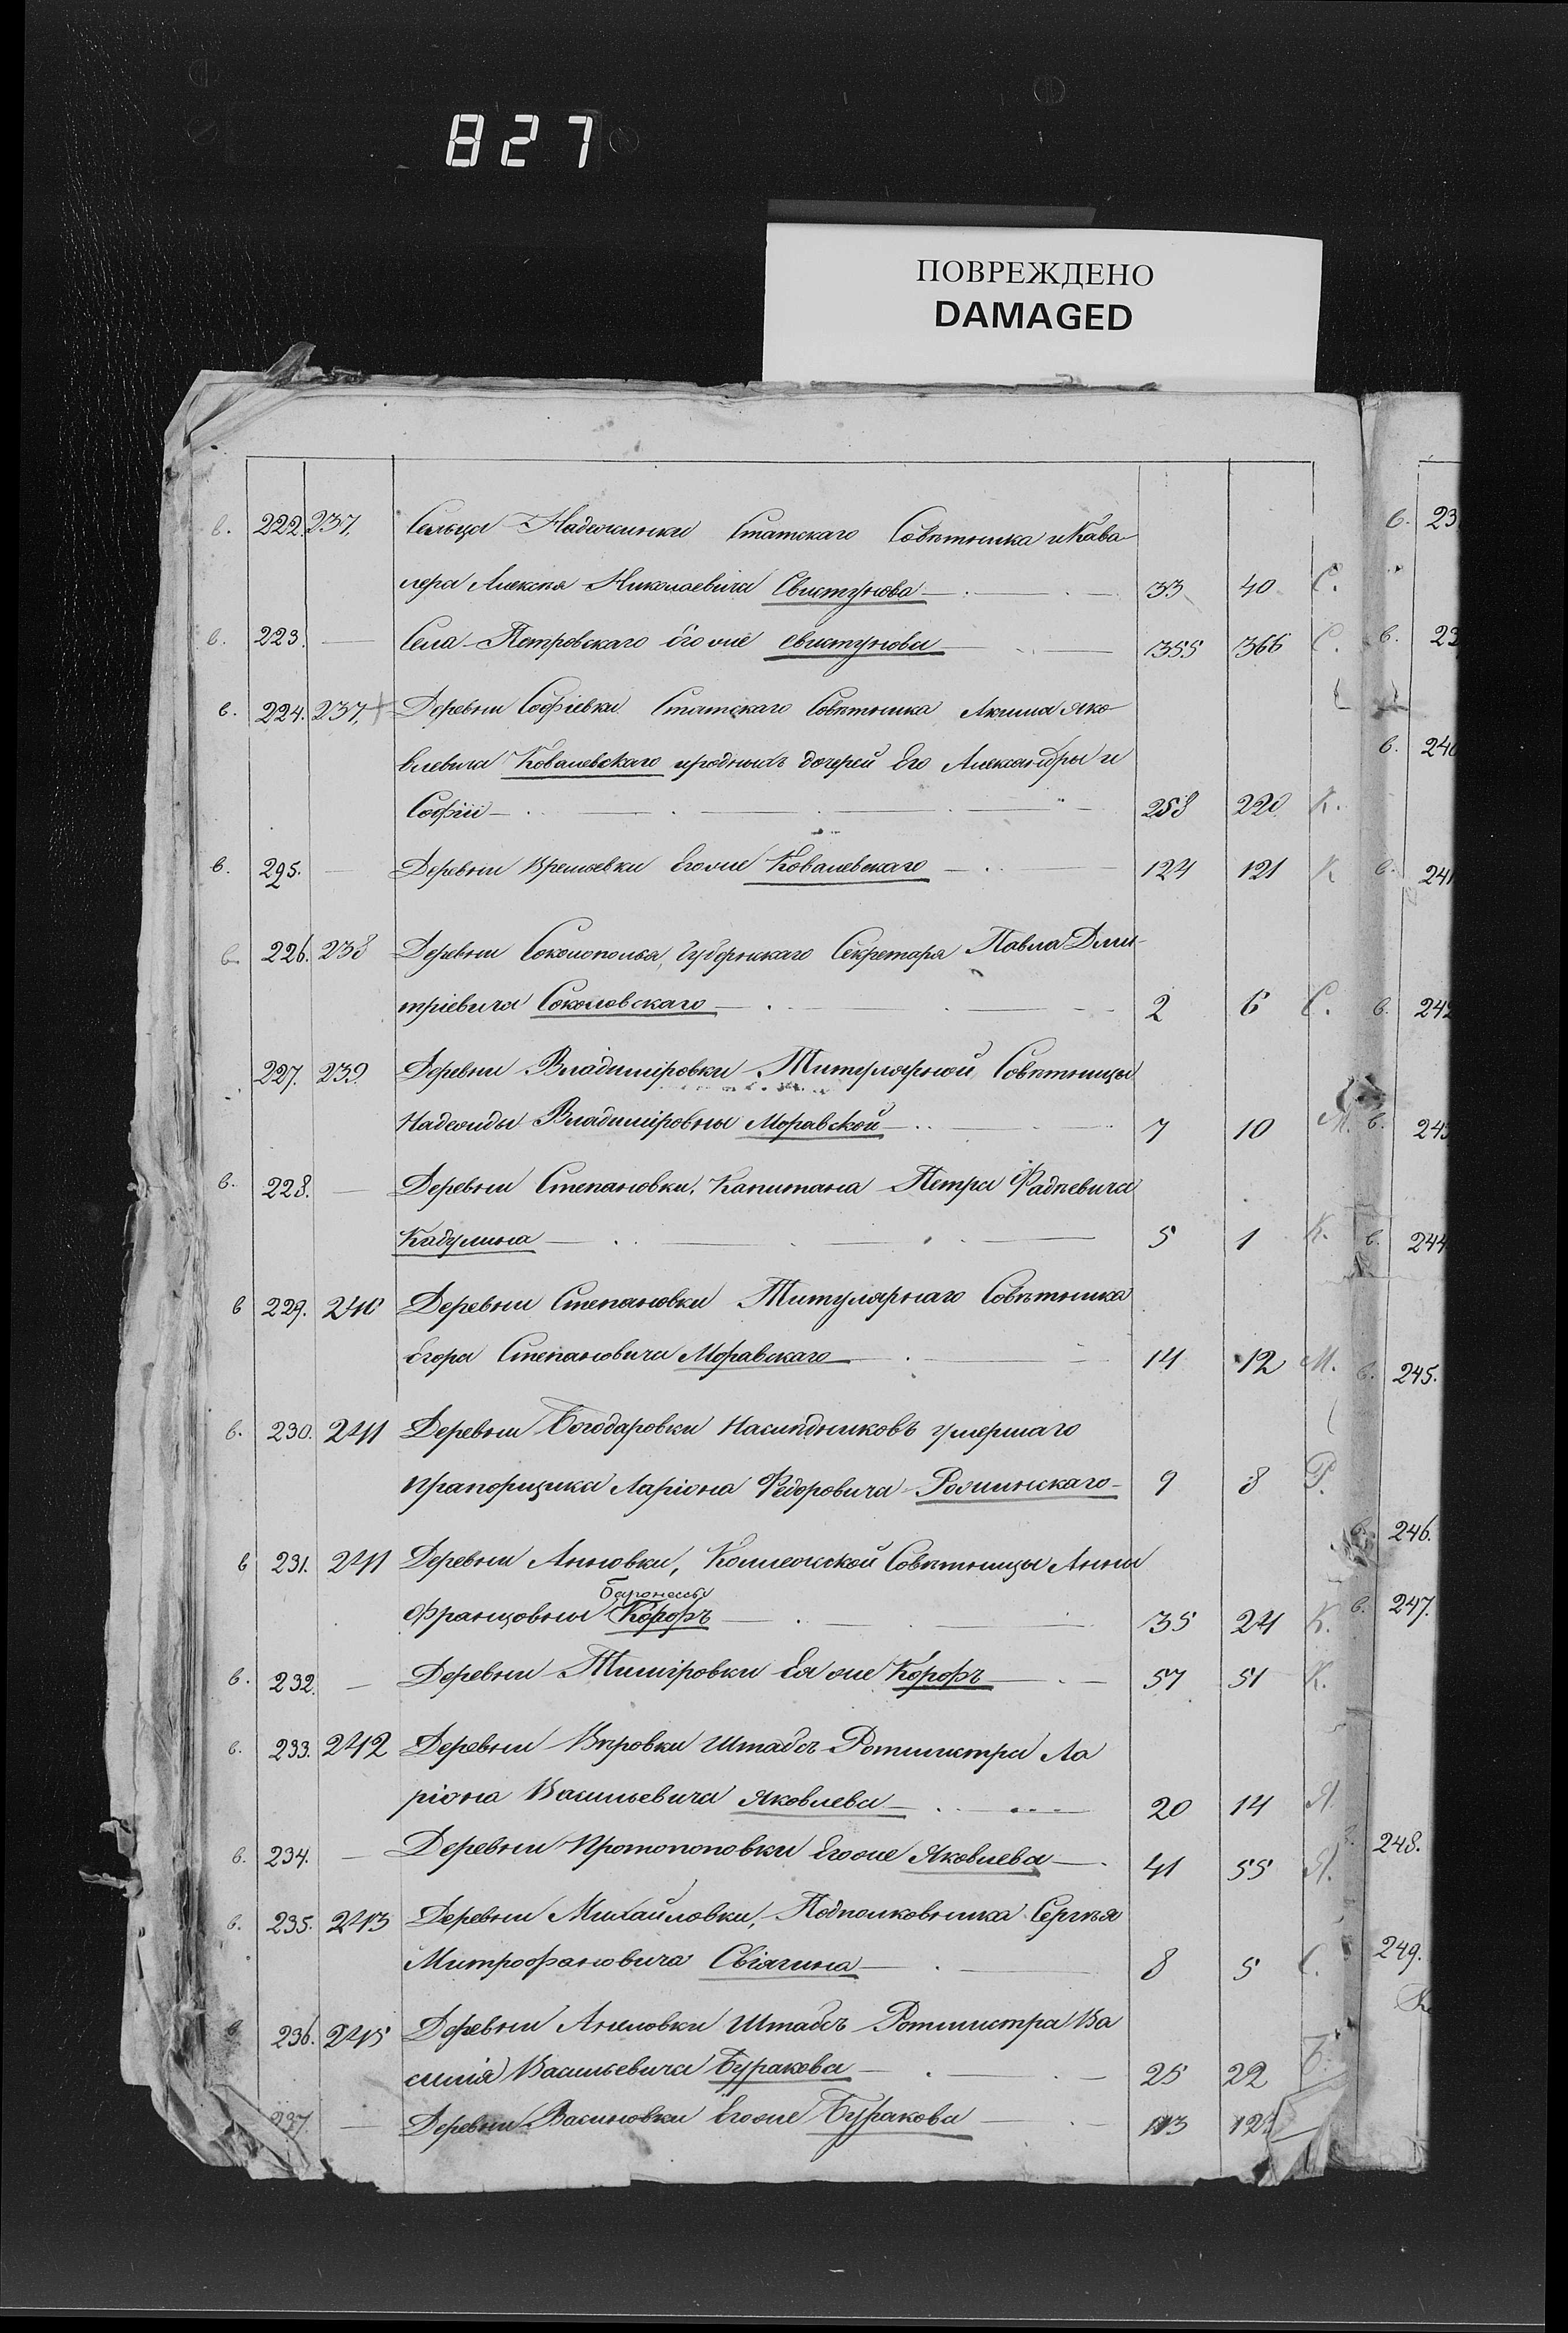 827
ПОВРЕЖДЕНО
DAMAGED
в. 222. 237. Сельца Надежинки Статскаго Совѣтника и Кава-
лера Алексѣя Николаевича Свистунова 33 40 С.
в. 223. — Села Петровскаго его же Свистунова 355 366 С.
в. 224. 237. Деревни Софіевки Статскаго Совѣтника Акима Яко-
влевича Ковалевскаго и родныхъ дочерей Его Александры и
Софіи 253 220 К.
в. 225. — Деревни Времьевки Его же Ковалевскаго 124 121 К
в. 226. 238 Деревни Сокологорья, Губернскаго Секретаря Павла Дми-
тріевича Соколовскаго 2 6 С.
227. 239. Деревни Владиміровки Титулярной Совѣтницы
Надежды Владиміровны Моравской 7 10 М.
в. 228. — Деревни Степановки, Капитана Петра Фадѣевича
Кадулина 5 1 К.
в 229. 240 Деревни Степановки Титулярнаго Совѣтника
Егора Степановича Моравскаго 14 12 М.
в. 230. 241 Деревни Богодаровки Наслѣдниковъ умершаго
Прапорщика Ларіона Федоровича 9 8 Р.
в 231. 241 Деревни Анновки, Коллежской Совѣтницы Анны
Баронессы
Францовны Корфъ 35 24 К.
в. 232. — Деревни Ея же Корфъ 57 51 К.
в. 233. 242 Деревни Вѣровки Штабсъ-Ротмистра Ла
ріона Васильевича Яковлева 20 14 Я.
в. 234. — Деревни Протопоповки Его же Яковлева 41 55 Я.
в. 235. 243 Деревни Михайловки, Подполковника Сергѣя
Митрофановича 8 5 С.
в 236. 245 Деревни Штабсъ Ротмистра Ва
силія Васильевича Буракова 25 22 Б.
237. — Деревни Васиновки Его же Буракова 113
в. 23
в. 23
в. 240
в. 241
в. 242
в. 243
в. 244
в. 245.
в. 246.
в. 247.
248.
249.